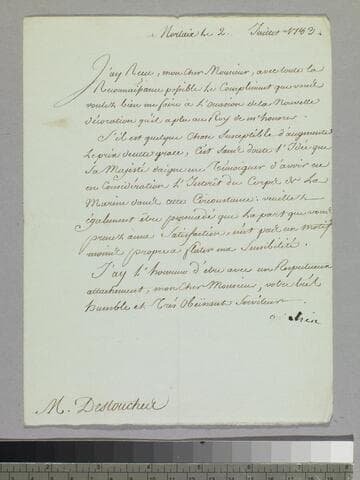 Morlaix le 2. Juillet 1783.
J'ay Reçu, mon cher Monsieur, avec toute la
Reconnaissance possible le Compliment que vous
voulez bien me faire à l'occasion de la Nouvelle
décoration qu'il a plu au Roy de m'honorer.
S'il est quelque chose susceptible d'augmenter
le prix de cette grace, c'est sans doute l'Idée que
Sa Majesté daigne me Témoigner d'avoir eu
en Considération l'Interet du Corps de la
Marine dans cette Circonstance: veuillez
également être persuadé que la part que vous
prenez à ma Satisfaction, n'est pas un motif
moins propre à flater ma Sensibilité.
J'ay l'honneur d'être avec un Respectueux
attachement, mon cher Monsieur, votre très
humble et Très Obéissant Serviteur
M. Destouches